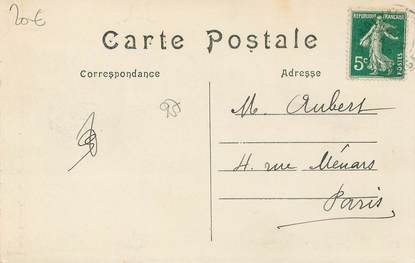 20€
Carte Postale
RÉPUBLIQUE FRANÇAISE
5c
POSTES
Correspondance
Adresse
M. Aubert
4. rue Ménars
Paris